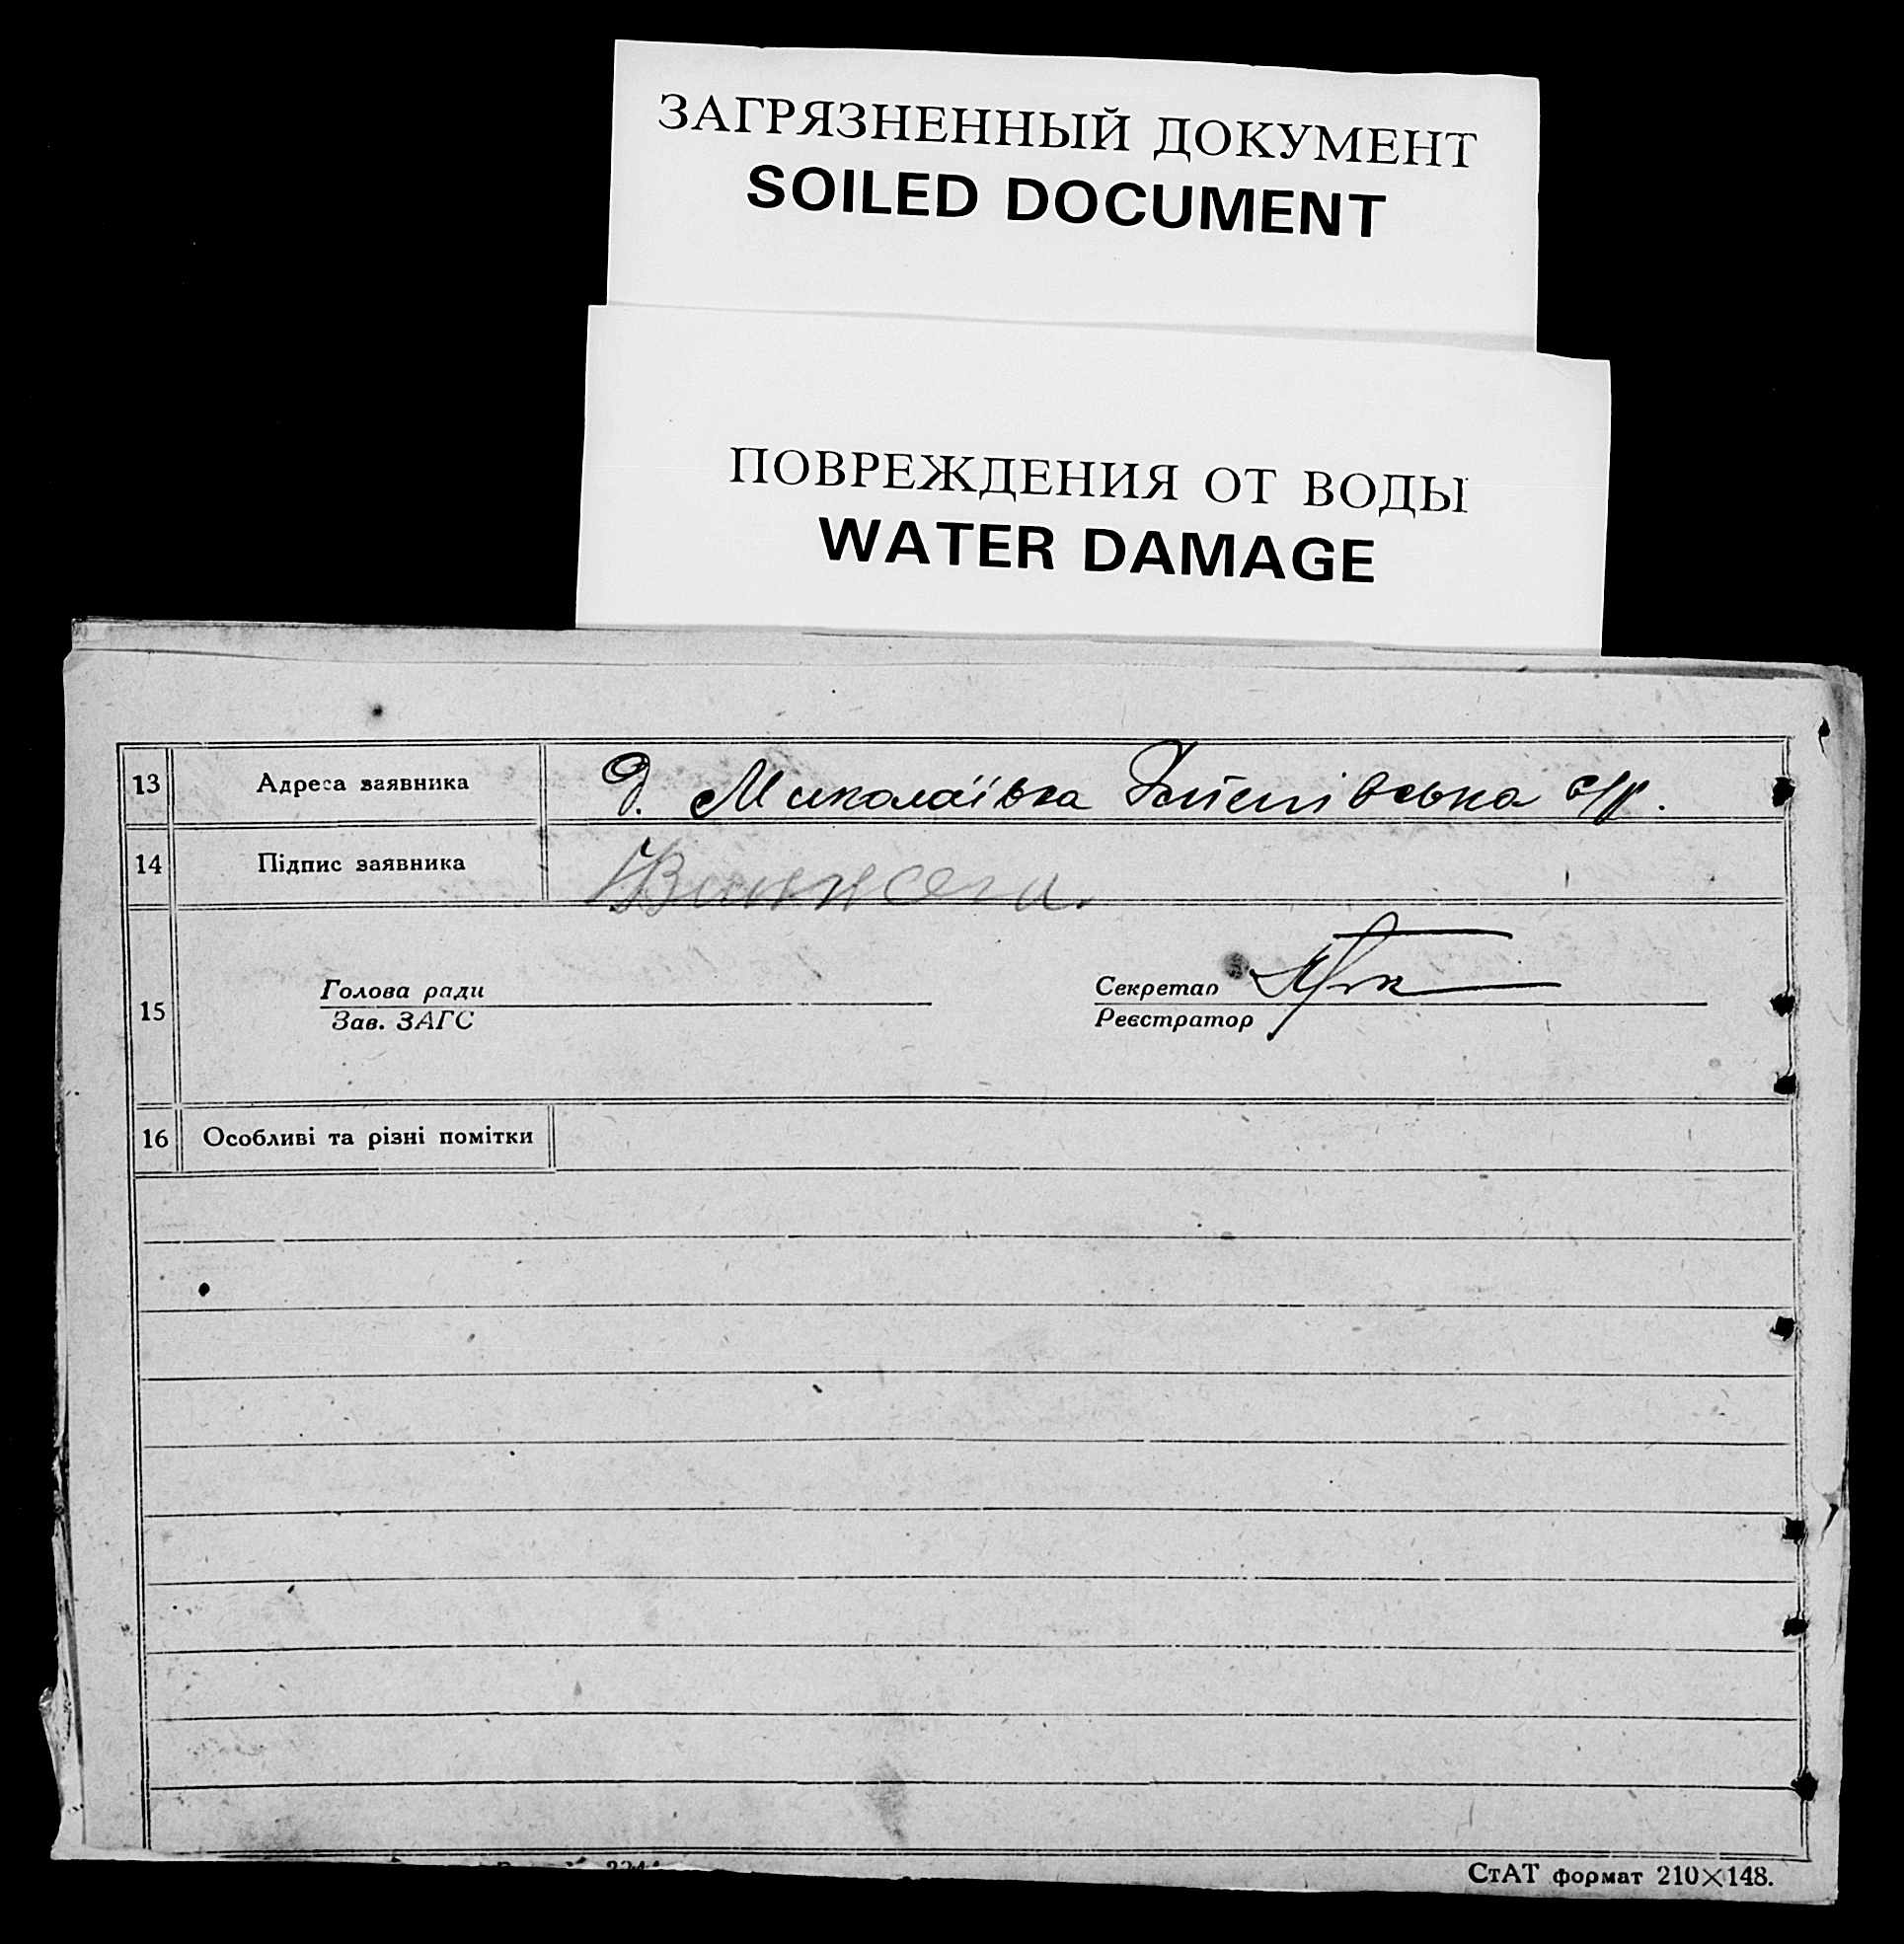 ЗАГРЯЗНЕННЫЙ ДОКУМЕНТ
SOILED DOCUMENT
ПОВРЕЖДЕНИЯ ОТ ВОДЫ
WATER DAMAGE
13 Адреса заявника Д. Миколаївка с/р.
14 Підпис заявника
15 Голова ради Секретар
Зав. ЗАГС Реєстратор
16 Особливі та різні помітки
СтАТ формат 210×148.